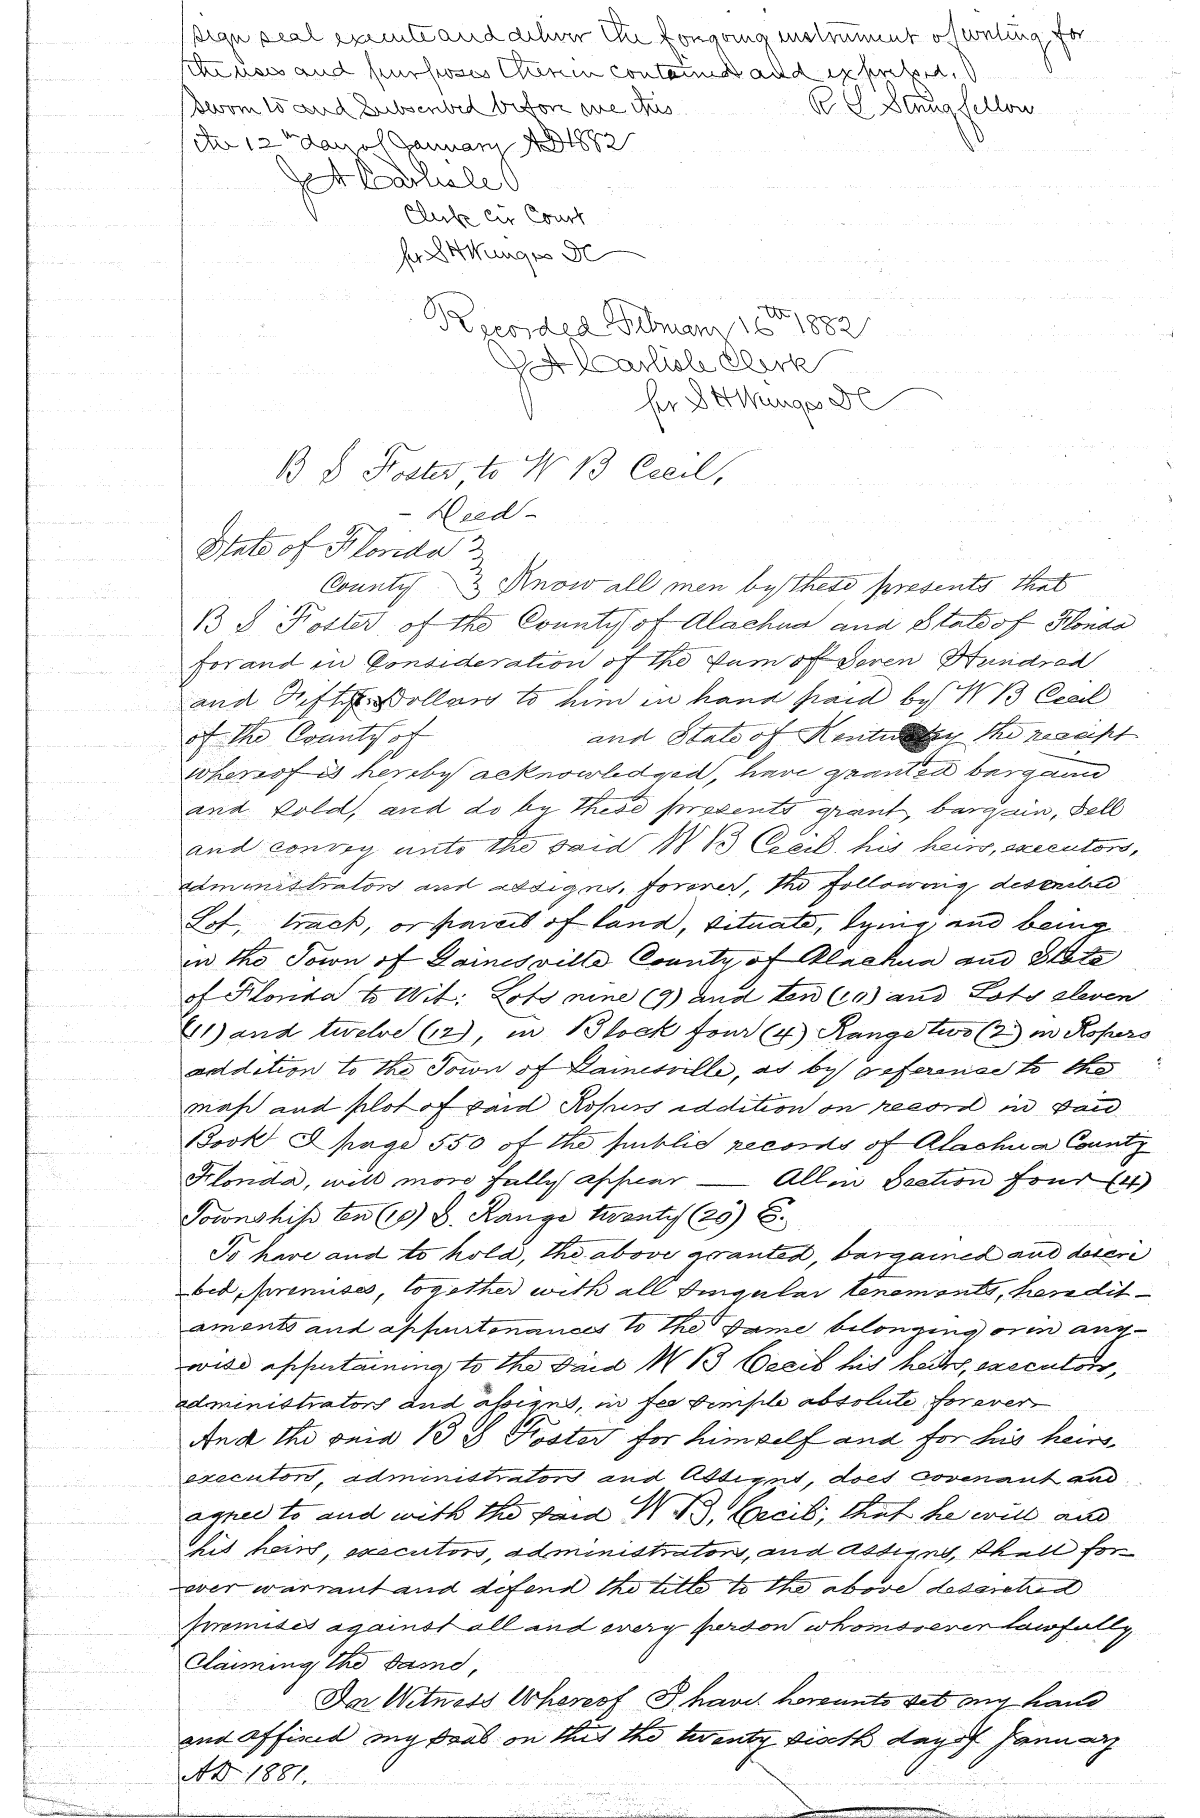 sign seal execute and deliver the foregoing instrument of writing for
the uses and purposes therein contained and expressed.
Sworn to and Subscribed before me this R L Stringfellow
the 12th day of January AD 1882
J A Carlisle
Clerk Cir Court
per S H Wienges DC
Recorded February 16th 1882
J A Carlisle Clerk
per S H Wienges DC
B S Foster, to W B Cecil,
- Deed -
State of Florida }
County } Know all men by these presents that
B S Foster of the County of Alachua and State of Florida
for and in Consideration of the sum of Seven Hundred
and Fifty Dollars to him in hand paid by W B Cecil
of the County of and State of Kentucky the receipt
whereof is hereby acknowledged, have granted bargained
and sold, and do by these presents grant, bargain, sell
and convey unto the said W B Cecil his heirs, executors,
administrators and assigns, forever, the following described
Lot, track, or parcel of land, situate, lying and being
in the Town of Gainesville County of Alachua and State
of Florida to Wit: Lots nine (9) and ten (10) and Lots eleven
(11) and twelve (12), in Block four (4) Range two (2) in Ropers
addition to the Town of Gainesville, as by reference to the
map and plot of said Ropers addition on record in said
Book I page 550 of the public records of Alachua County
Florida, will more fully appear — All in Section four (4)
Township ten (10) S. Range twenty (20) E.
To have and to hold, the above granted, bargained and descri
bed, premises, together with all singular tenements, heredit-
aments and appurtenances to the same belonging or in any-
wise appertaining to the said W B Cecil his heirs, executors,
administrators and assigns, in fee simple absolute forever
And the said B S Foster for himself and for his heirs,
executors, administrators and Assigns, does covenant and
agree to and with the said W B, Cecil; that he will and
his heirs, executors, administrators, and Assigns, shall for
ever warrant and defend the title to the above described
premises against all and every person whomsoever lawfully
Claiming the same,
In Witness Whereof I have hereunto set my hand
and affixed my seal on this the twenty sixth day of January
AD 1881.